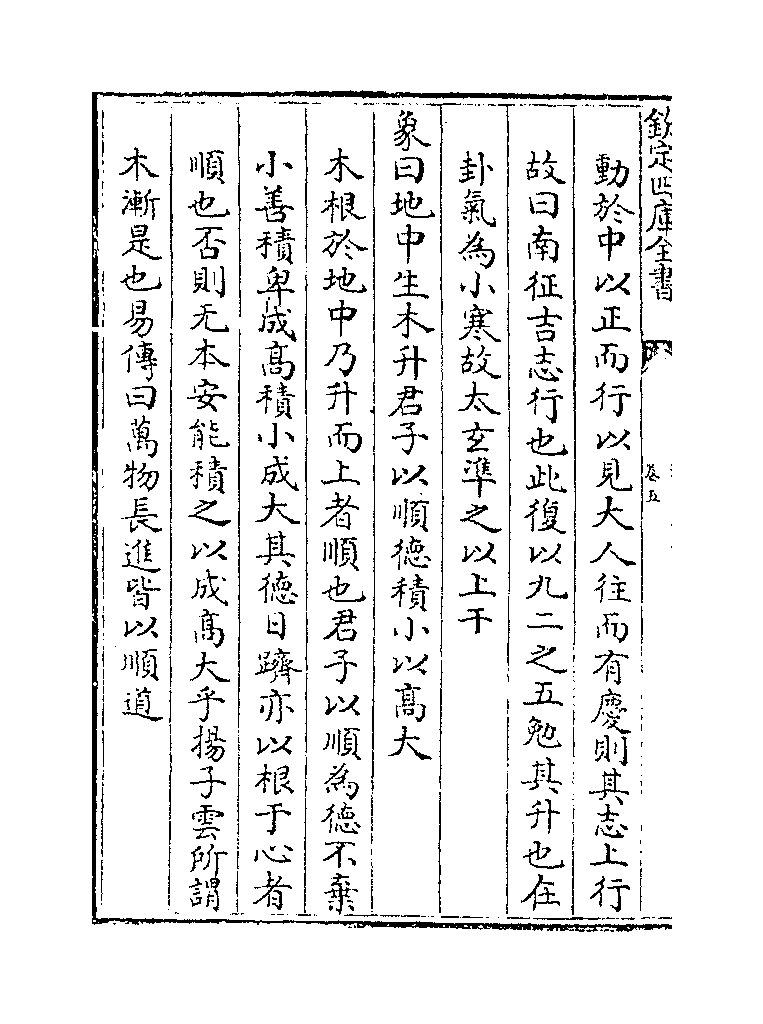 欽定四庫全書
卷五
動於中以正而行以見大人往而有慶則其志上行
故曰南征吉志行也此復以九二之五勉其升也在
卦氣為小寒故太玄準之以上干
象曰地中生木升君子以順德積小以髙大
木根於地中乃升而上者順也君子以順為德不棄
小善積卑成髙積小成大其德日躋亦以根于心者
順也否則无本安能積之以成髙大乎揚子雲所謂
木漸是也易傳曰萬物長進皆以順道